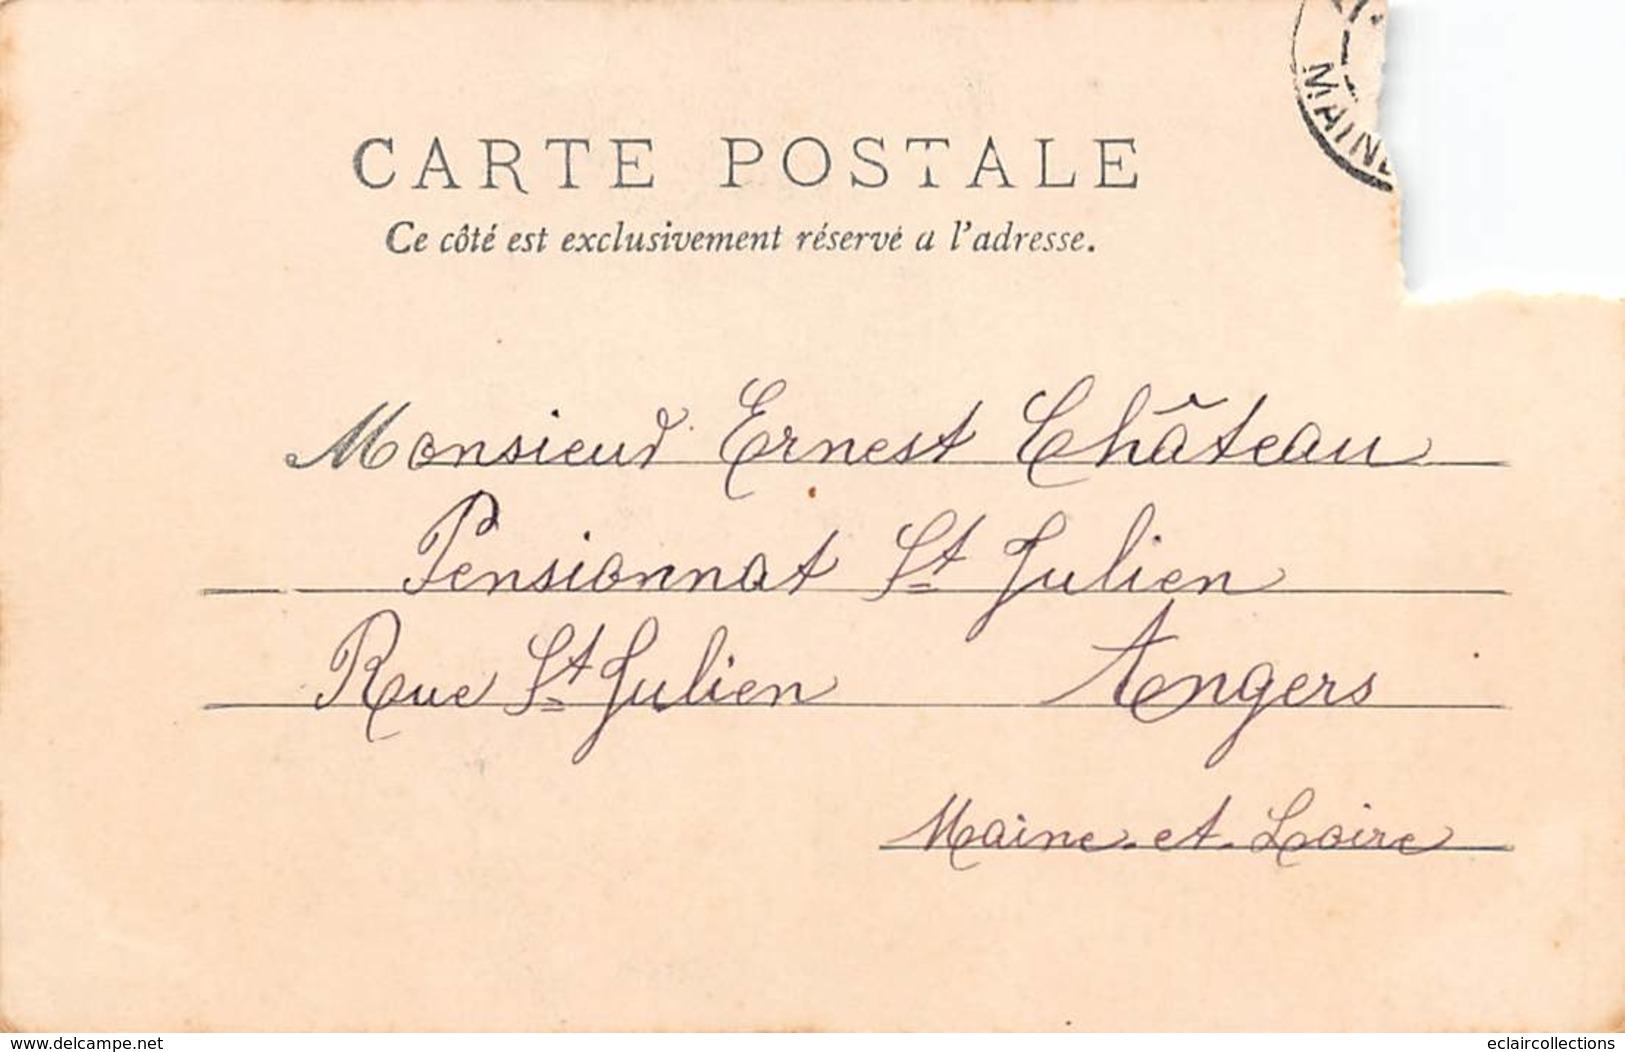 MAINE
CARTE POSTALE
Ce côté est exclusivement réservé a l'adresse.
Monsieur Ernest Château
Pensionnat St Julien
Rue St Julien Angers
Maine-et-Loire
www.delcampe.net
eclaircollections